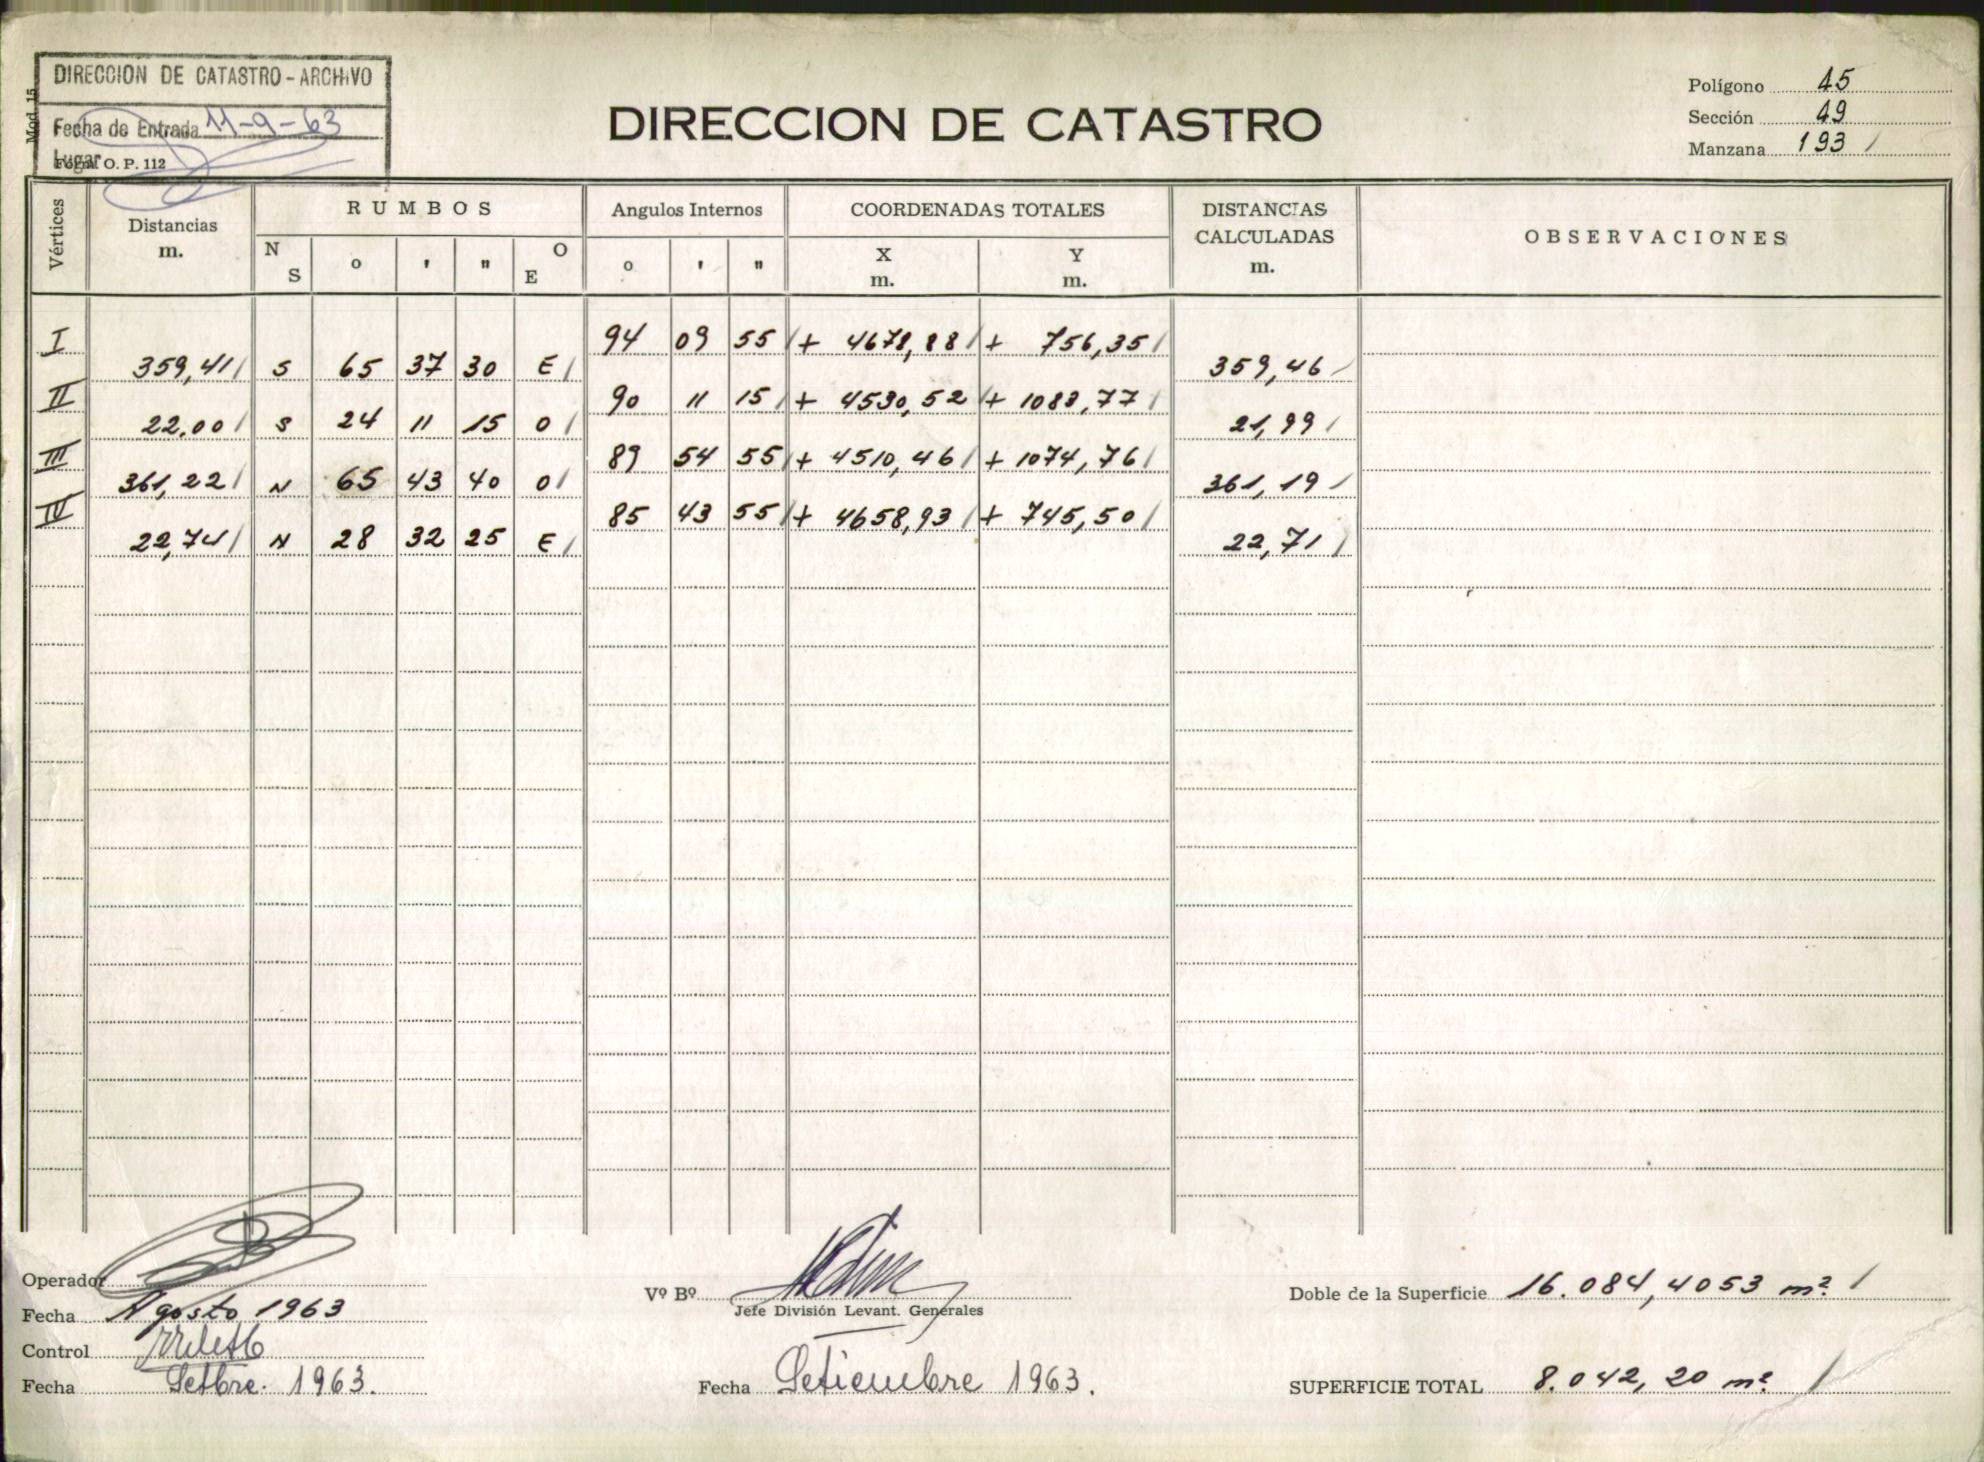 DIRECCION DE CATASTRO - ARCHIVO
Mod. 15
Fecha de Entrada 11-9-63
Lugar
Form. O. P. 112
DIRECCION DE CATASTRO
Polígono 45
Sección 49
Manzana 193 /
Vértices Distancias m. RUMBOS Angulos Internos COORDENADAS TOTALES DISTANCIAS CALCULADAS m. OBSERVACIONES
N S o ' " O E o ' " X m. Y m.
I 94 09 55 / + 4678,88 / + 756,35 /
359,41 / S 65 37 30 E / 359,46 /
II 90 11 15 / + 4530,52 / + 1083,77 /
22,00 / S 24 11 15 O / 21,99 /
III 89 54 55 / + 4510,46 / + 1074,76 /
361,22 / N 65 43 40 O / 361,19 /
IV 85 43 55 / + 4658,93 / + 745,50 /
22,74 / N 28 32 25 E / 22,71 /
Operador
Fecha Agosto 1963
Control
Fecha Setbre. 1963.
Vº Bº
Jefe División Levant. Generales
Fecha Setiembre 1963.
Doble de la Superficie 16.084,4053 m². /
SUPERFICIE TOTAL 8.042,20 m². /